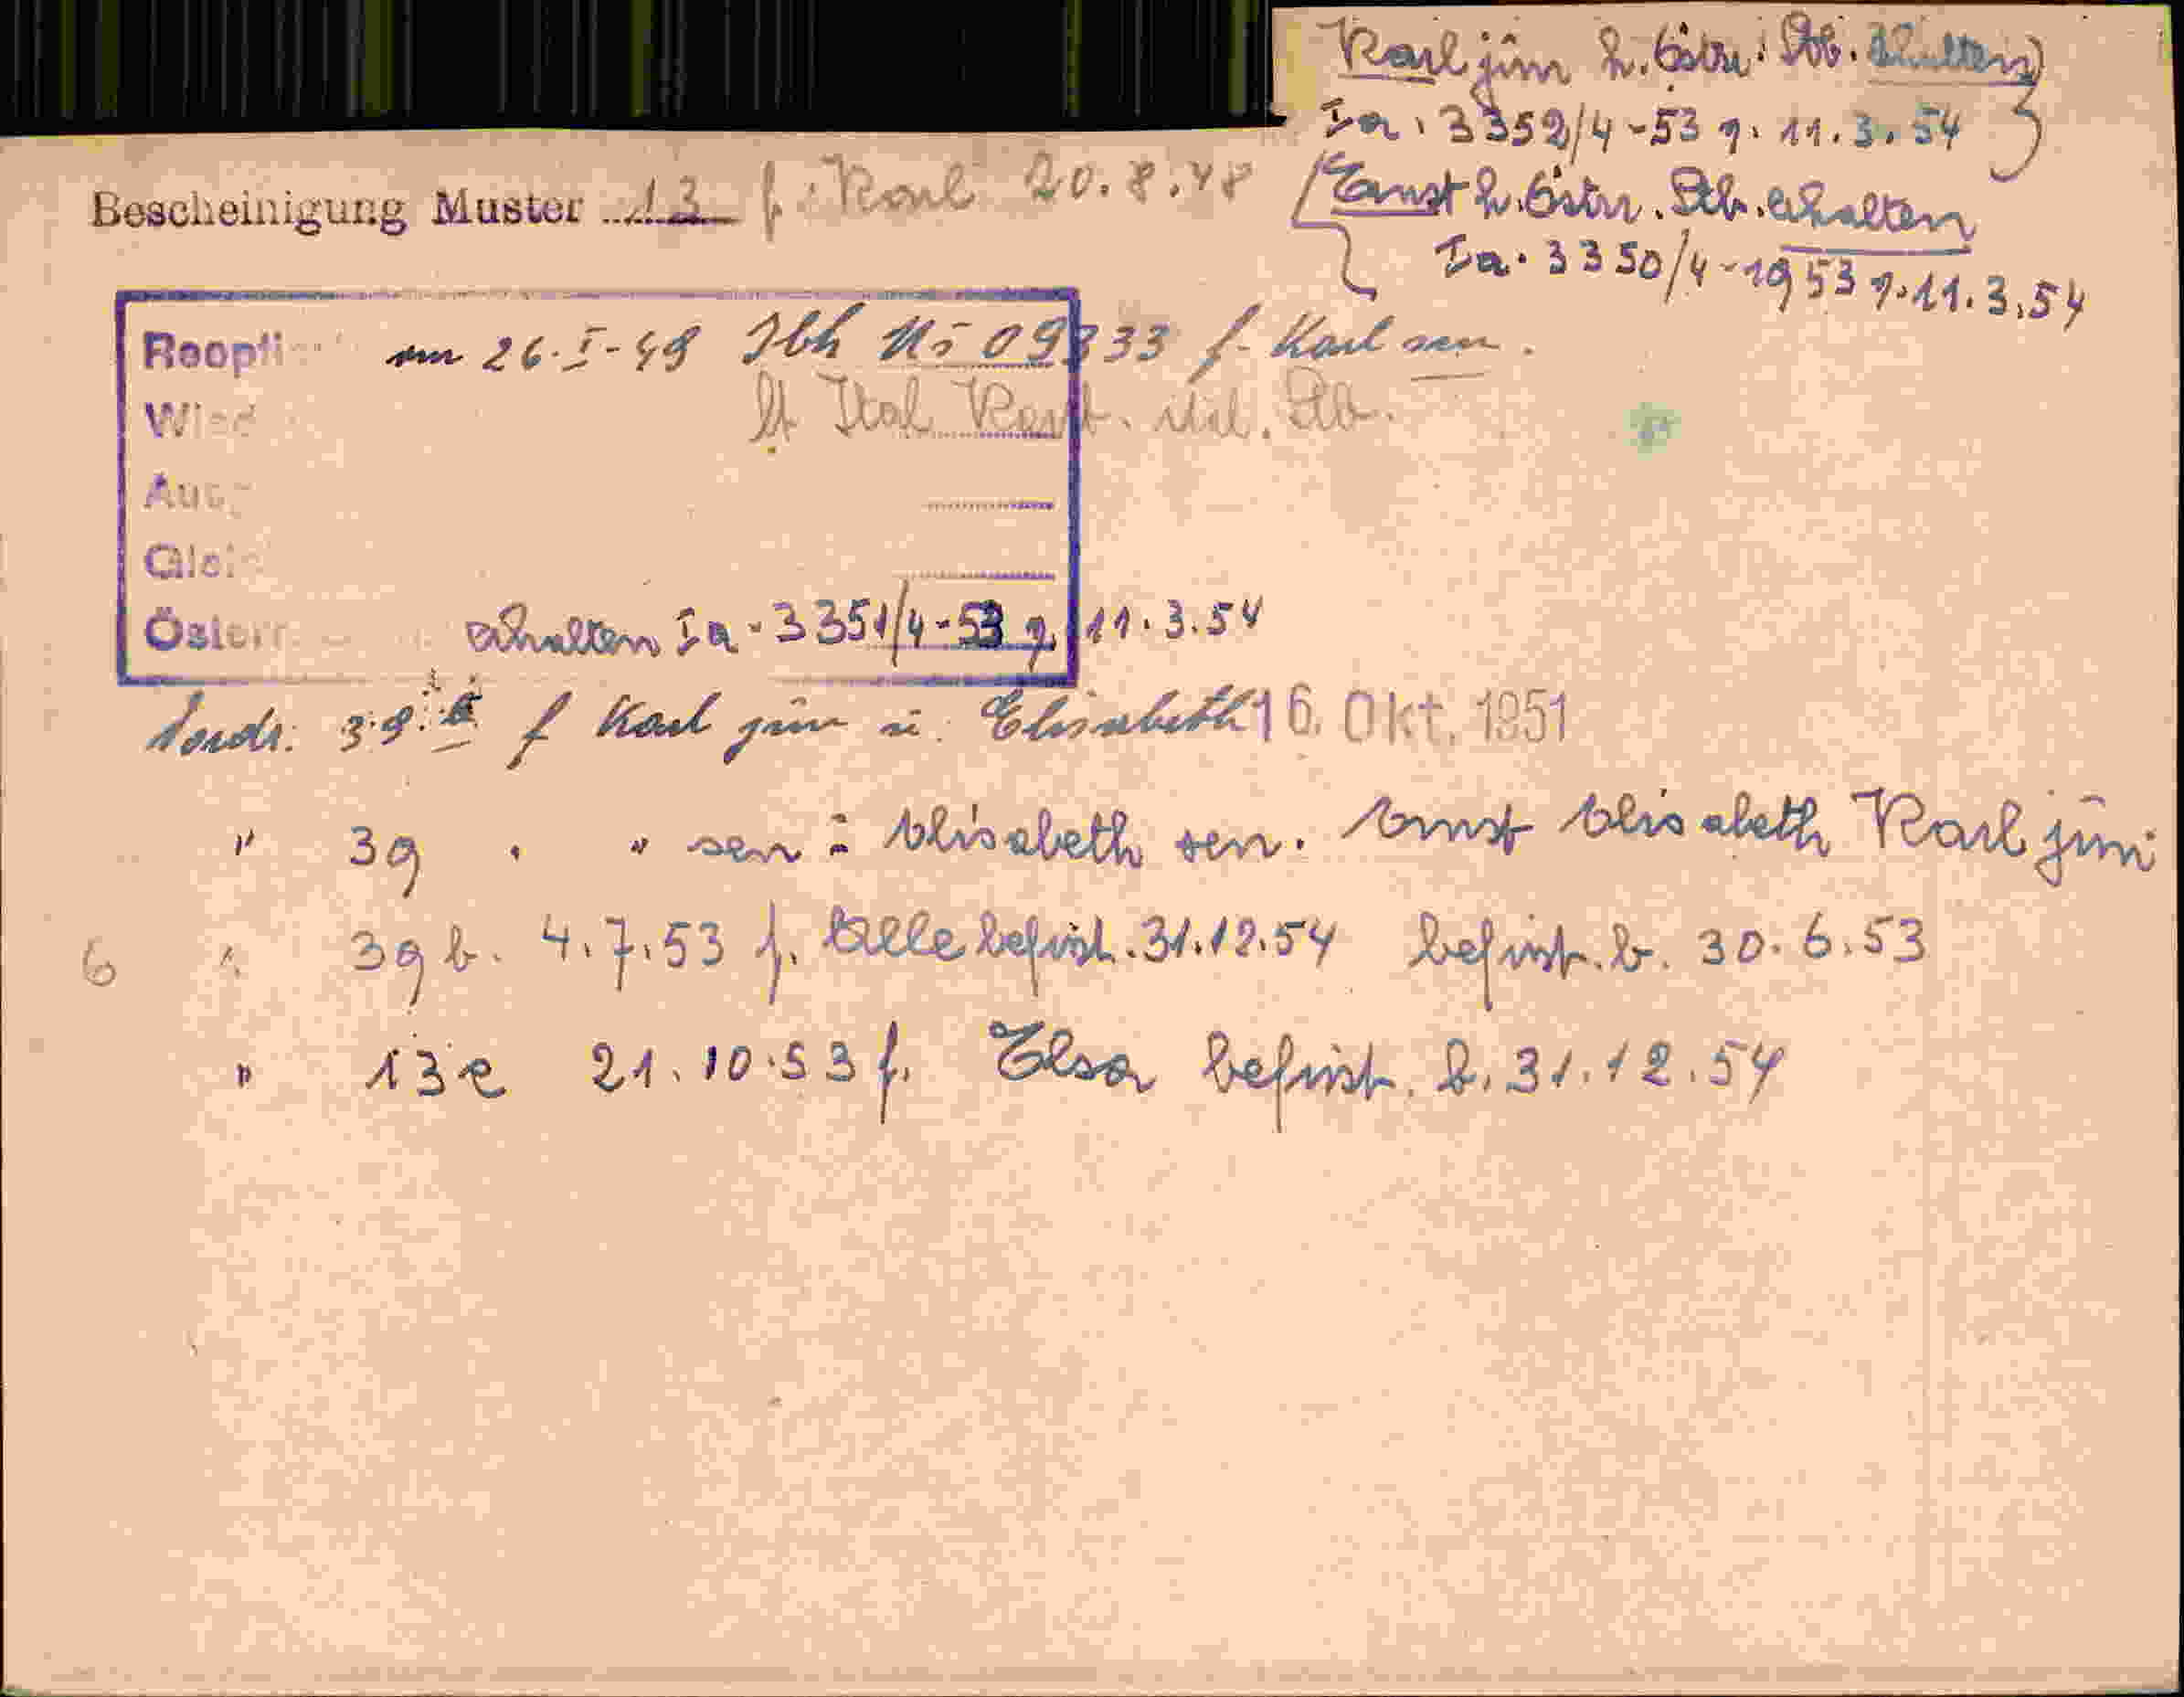 Karl jun h. Östr. Stb. erhalten
Ia. 3352/4-53 v. 11.3.54
Bescheinigung Muster 13 f. Karl 20.8.48
Ernst h. Östr. Stb. erhalten
Ia. 3350/4-1953 v. 11.3.54
Reopti am 26.I-49 09333 f. Karl sen.
Wied lt Ital
Ausg
Gleic
Österr erhalten Ia-3351/4-53 v. 11.3.54
3.g. f Karl jun u. Elisabeth 16. Okt. 1951
" 3g " " sen : Elisabeth sen. Ernst Elisabeth Karl jun
6 " 3g b. 4.7.53 f. Alle befrist. 31.12.54 befrist. b. 30.6.53
" 13e 21.10.53 f. Elsa befrist. b. 31.12.54